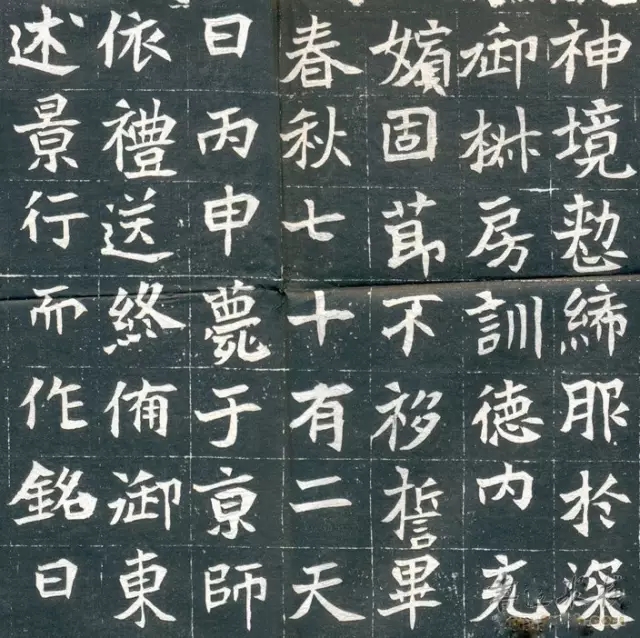 神境愨締服於深
御椒房訓德內充
嬪固莭不移誓畢
春秋七十有二天
日丙申薨于京師
依禮送終俻御東
述景行而作銘曰